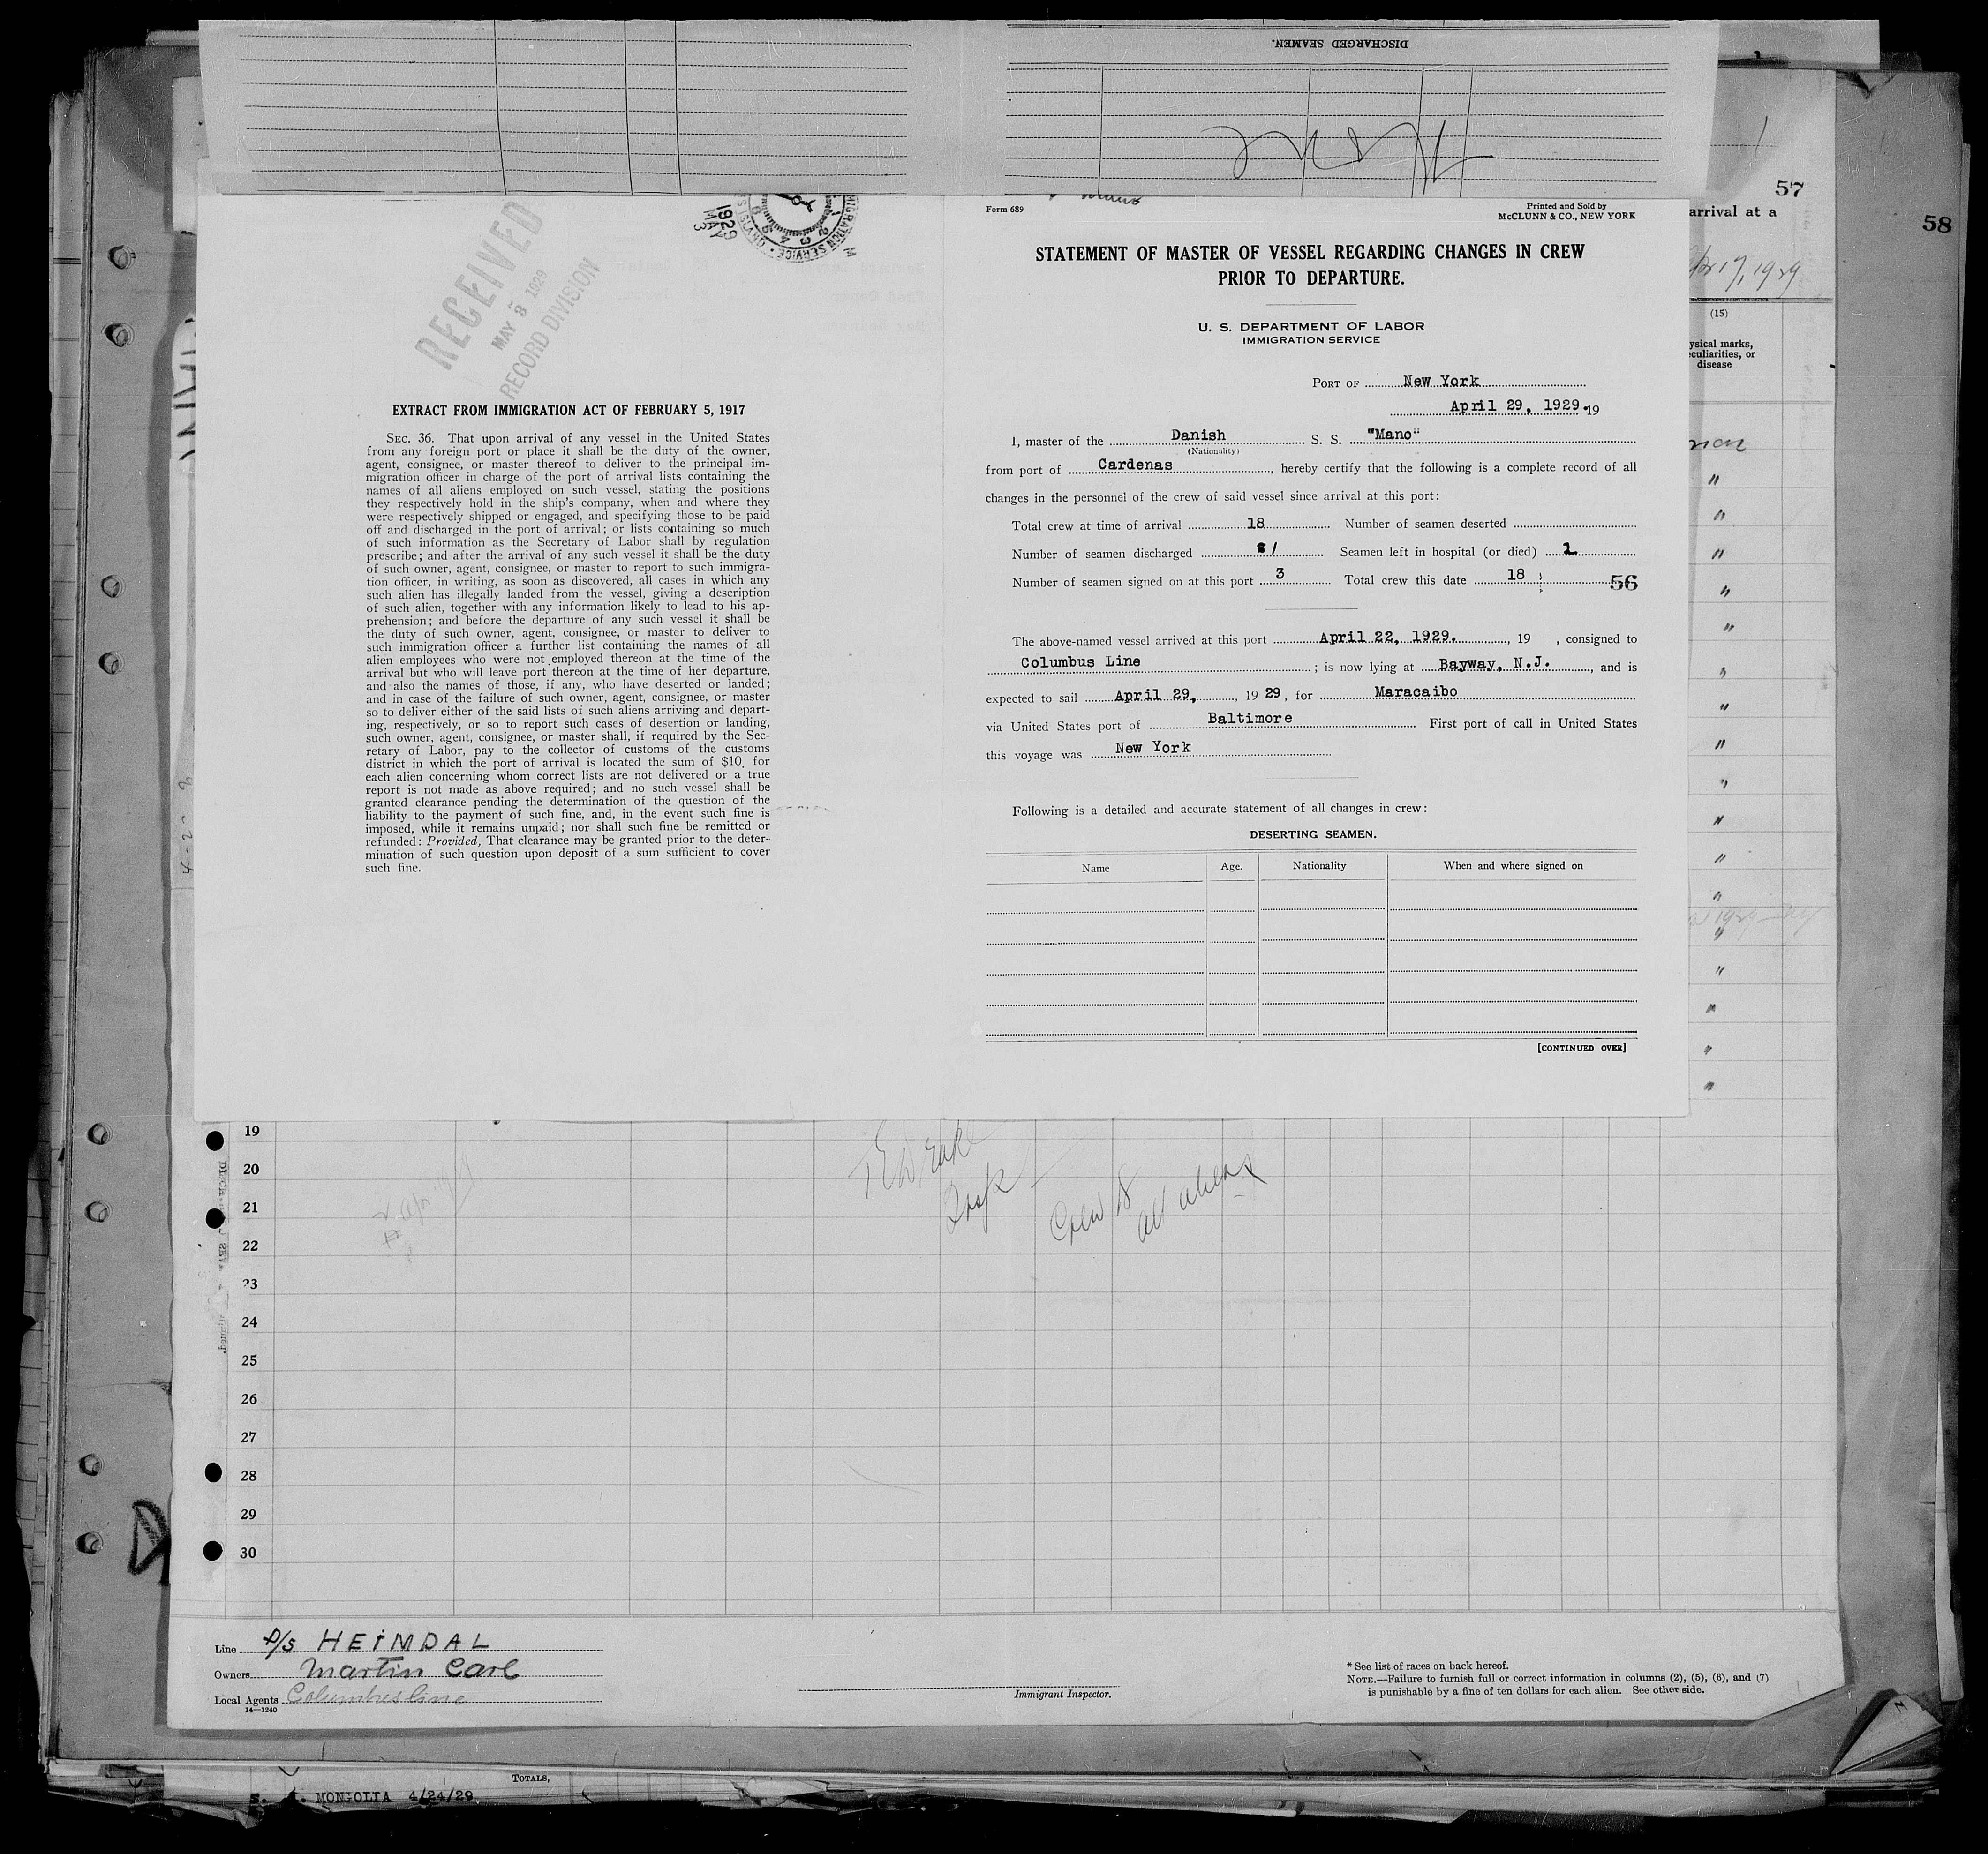 DISCHARGED SEAMEN.
57
58
arrival at a
(15)
ysical marks,
culiarities, or
disease
RECEIVED
MAY 8 1929
RECORD DIVISION
1929
MAY
3
EXTRACT FROM IMMIGRATION ACT OF FEBRUARY 5, 1917
SEC. 36. That upon arrival of any vessel in the United States
from any foreign port or place it shall be the duty of the owner,
agent, consignee, or master thereof to deliver to the principal im-
migration officer in charge of the port of arrival lists containing the
names of all aliens employed on such vessel, stating the positions
they respectively hold in the ship's company, when and where they
were respectively shipped or engaged, and specifying those to be paid
off and discharged in the port of arrival; or lists containing so much
of such information as the Secretary of Labor shall by regulation
prescribe; and after the arrival of any such vessel it shall be the duty
of such owner, agent, consignee, or master to report to such immigra-
tion officer, in writing, as soon as discovered, all cases in which any
such alien has illegally landed from the vessel, giving a description
of such alien, together with any information likely to lead to his ap-
prehension; and before the departure of any such vessel it shall be
the duty of such owner, agent, consignee, or master to deliver to
such immigration officer a further list containing the names of all
alien employees who were not employed thereon at the time of the
arrival but who will leave port thereon at the time of her departure,
and also the names of those, if any, who have deserted or landed;
and in case of the failure of such owner, agent, consignee, or master
so to deliver either of the said lists of such aliens arriving and depart-
ing, respectively, or so to report such cases of desertion or landing,
such owner, agent, consignee, or master shall, if required by the Sec-
retary of Labor, pay to the collector of customs of the customs
district in which the port of arrival is located the sum of $10 for
each alien concerning whom correct lists are not delivered or a true
report is not made as above required; and no such vessel shall be
granted clearance pending the determination of the question of the
liability to the payment of such fine, and, in the event such fine is
imposed, while it remains unpaid; nor shall such fine be remitted or
refunded: Provided, That clearance may be granted prior to the deter-
mination of such question upon deposit of a sum sufficient to cover
such fine.
Form 689
Printed and Sold by
McCLUNN & CO., NEW YORK
STATEMENT OF MASTER OF VESSEL REGARDING CHANGES IN CREW
PRIOR TO DEPARTURE.
U. S. DEPARTMENT OF LABOR
IMMIGRATION SERVICE
PORT OF New York
April 29, 1929. 19
I, master of the Danish S. S. "Mano"
(Nationality)
from port of Cardenas, hereby certify that the following is a complete record of all
changes in the personnel of the crew of said vessel since arrival at this port:
Total crew at time of arrival 18 Number of seamen deserted
Number of seamen discharged 1 Seamen left in hospital (or died) 2
Number of seamen signed on at this port 3 Total crew this date 18
56
The above-named vessel arrived at this port April 22, 1929., 19 , consigned to
Columbus Line; is now lying at Bayway, N.J., and is
expected to sail April 29, , 19 29, for Maracaibo
via United States port of Baltimore First port of call in United States
this voyage was New York
Following is a detailed and accurate statement of all changes in crew:
DESERTING SEAMEN.
Name Age. Nationality When and where signed on
[CONTINUED OVER]
19
20
21
22
23
24
25
26
27
28
29
30
Crew 18
all aliens
Line D/S HEIMDAL
Owners Martin Carl
Local Agents Columbus line
14—1240
Immigrant Inspector.
* See list of races on back hereof.
NOTE.—Failure to furnish full or correct information in columns (2), (5), (6), and (7)
is punishable by a fine of ten dollars for each alien. See other side.
TOTALS,
MONGOLIA 4/24/29